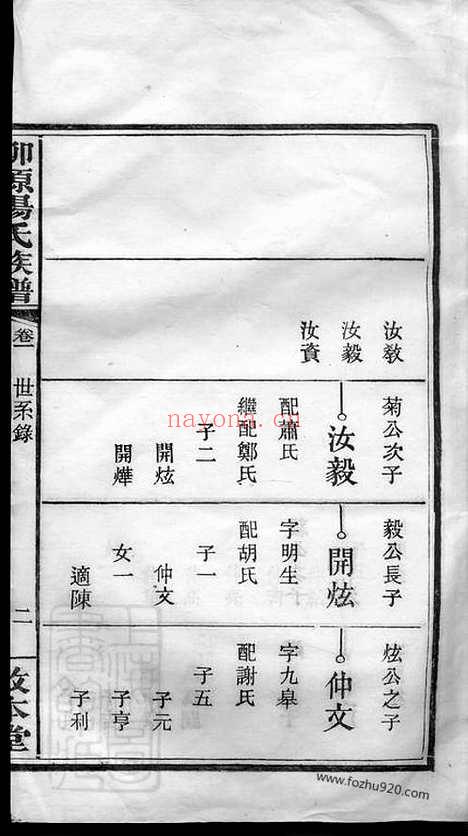 汝敎
汝毅
汝資
菊公次子
汝毅
配蕭氏
繼配鄭氏
子二
開炫
開燁
毅公長子
開炫
字明生
配胡氏
子一
仲文
女一
適陳
炫公之子
仲文
字九皋
配謝氏
子五
子元
子亨
子利
柳原楊氏族譜
卷一
世系錄
二
敦本堂
nayona.cn
www.fozhu920.com